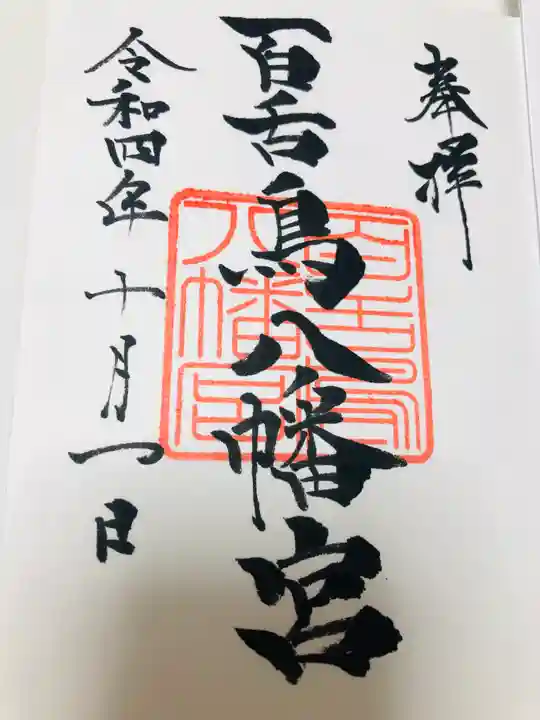 奉拝
百舌鳥八幡宮
百舌鳥
八幡宮
令和四年十月一日